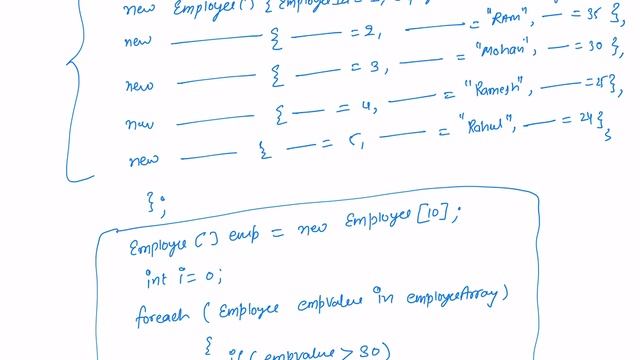 new Employee() { Employee
new ——— { —— = 2, —— = "RAM", — = 35 },
new ——— { —— = 3, —— = "Mohan", — = 30 },
new ——— { —— = 4, —— = "Ramesh", — = 25},
new ——— { —— = 5, —— = "Rahul", — = 24},
};
Employee [] emp = new Employee [10];
int i = 0;
foreach ( Employee empvalue in employeeArray)
{
if ( empvalue > 30)